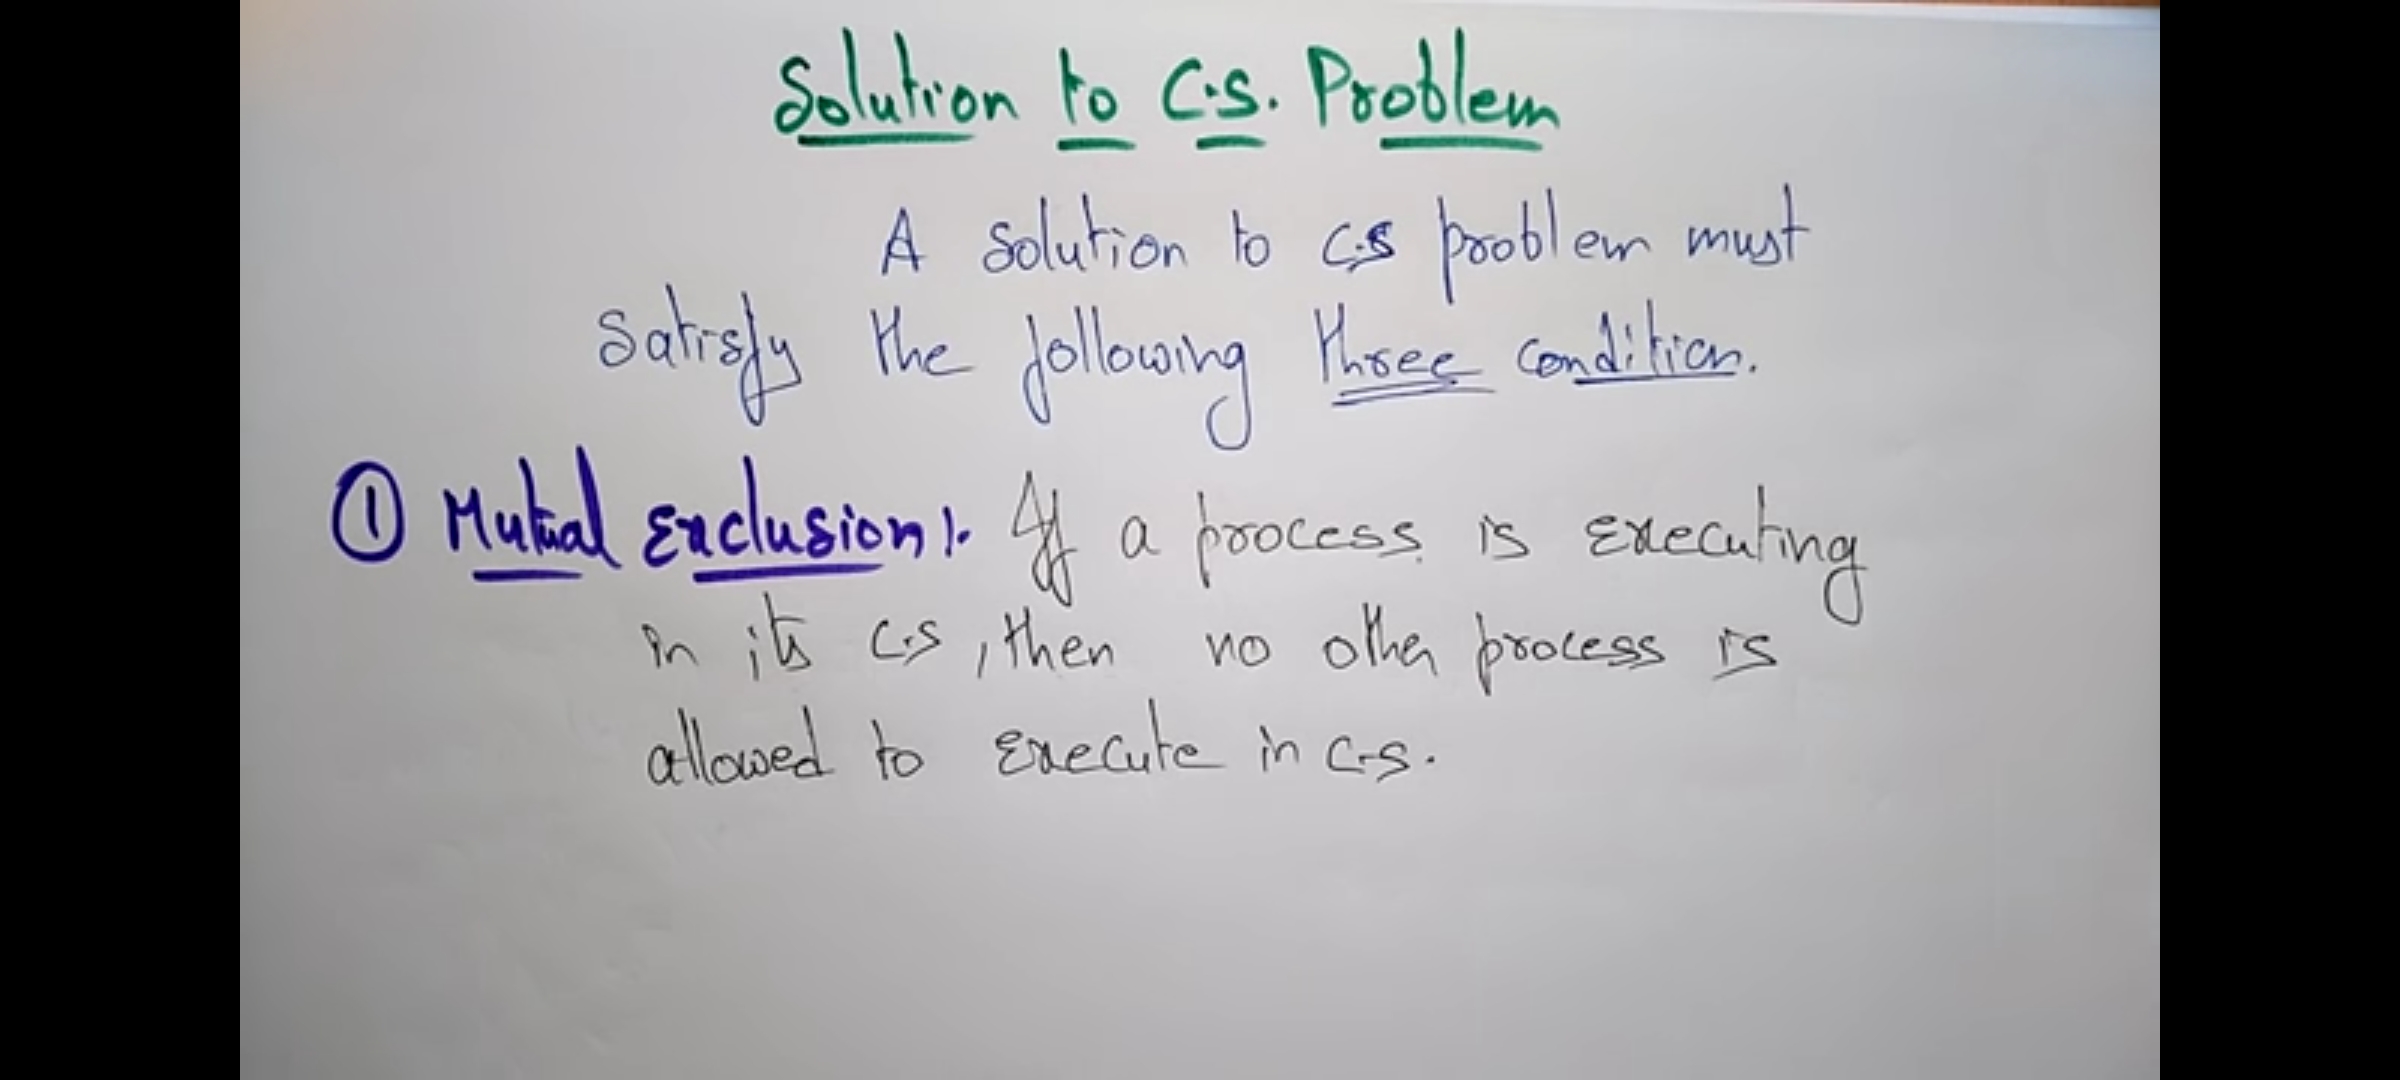 Solution to C.S. Problem
A solution to C.S problem must
satisfy the following three condition.
① Mutual Exclusion:- If a process is executing
in its C.S, then no other process is
allowed to execute in C.S.